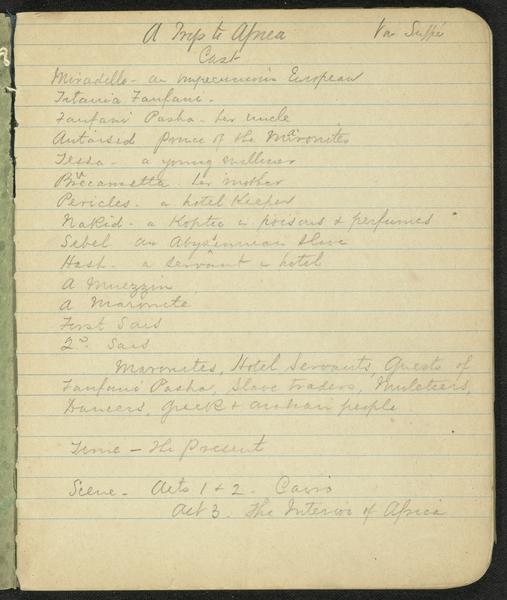 A Trip to Africa Von Suppé
Cast
Miradello - an impecunious European
Titania Fanfani -
Fanfani Pasha - her uncle
Antarsid prince of the Maronites
Tessa - a young milliner
Buccametta her mother
Pericles - a hotel Keeper
Nakid - a Koptic in poisons & perfumes
Sebel an Abyssinian slave
Hosh - a servant in hotel
A Muezzin
A Maronite
First Sais
2d Sais
Maronites, Hotel Servants, Guests of
Fanfani Pasha, Slave traders, Muleteers,
Dancers, Greek & arabian people
Time - The Present
Scene - Acts 1 & 2 - Cairo
Act 3. The Interior of Africa